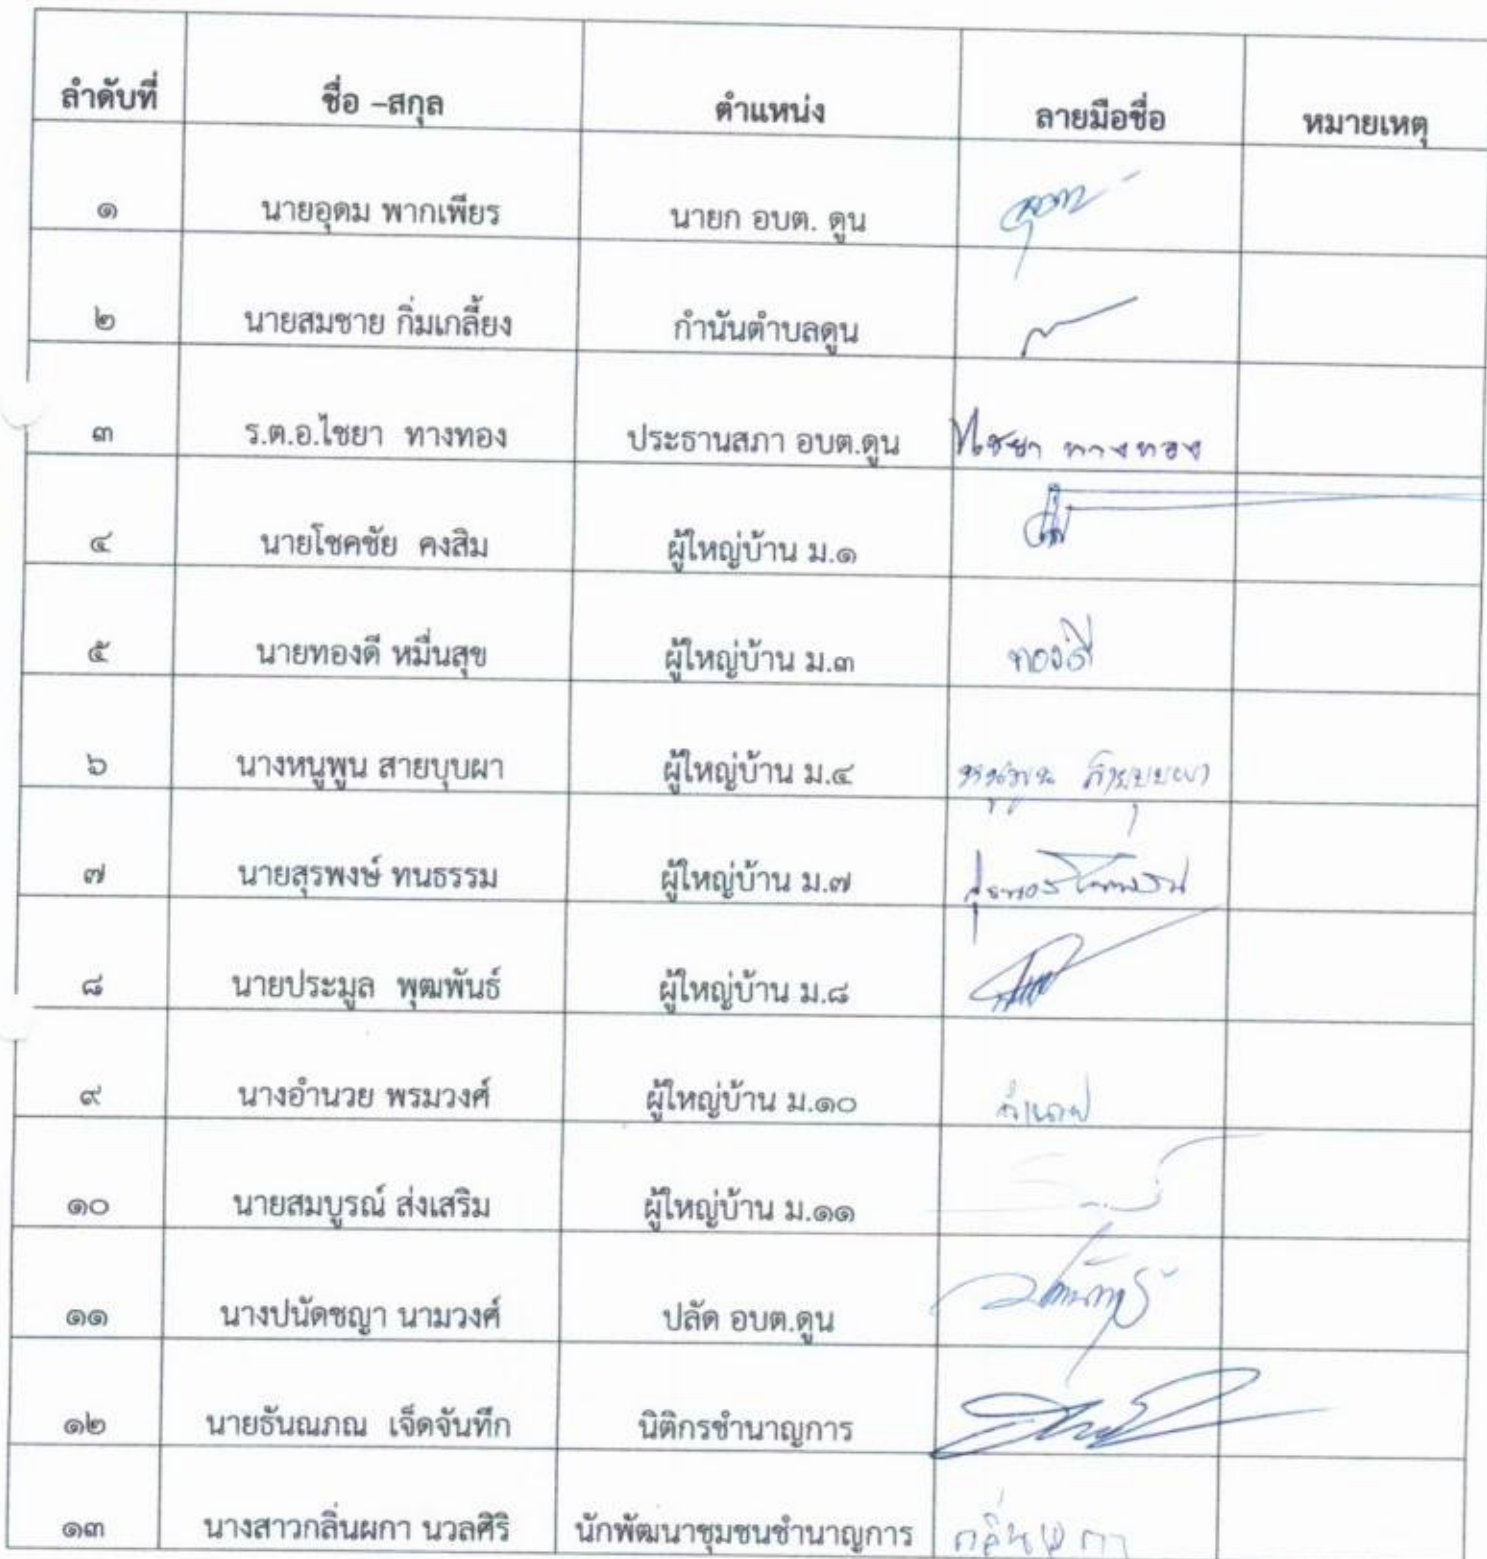 ลำดับที่ ชื่อ –สกุล ตำแหน่ง ลายมือชื่อ หมายเหตุ
๑ นายอุดม พากเพียร นายก อบต. ดูน
๒ นายสมชาย กิ่มเกลี้ยง กำนันตำบลดูน
๓ ร.ต.อ.ไชยา ทางทอง ประธานสภา อบต.ดูน ไชยา ทางทอง
๔ นายโชคชัย คงสิม ผู้ใหญ่บ้าน ม.๑
๕ นายทองดี หมื่นสุข ผู้ใหญ่บ้าน ม.๓ ทองดี
๖ นางหนูพูน สายบุบผา ผู้ใหญ่บ้าน ม.๔ หนูพูน สายบุบผา
๗ นายสุรพงษ์ ทนธรรม ผู้ใหญ่บ้าน ม.๗
๘ นายประมูล พุฒพันธ์ ผู้ใหญ่บ้าน ม.๘
๙ นางอำนวย พรมวงศ์ ผู้ใหญ่บ้าน ม.๑๐ อำนวย
๑๐ นายสมบูรณ์ ส่งเสริม ผู้ใหญ่บ้าน ม.๑๑
๑๑ นางปนัดชญา นามวงศ์ ปลัด อบต.ดูน
๑๒ นายธันณภณ เจ็ดจันทึก นิติกรชำนาญการ
๑๓ นางสาวกลิ่นผกา นวลศิริ นักพัฒนาชุมชนชำนาญการ กลิ่นผกา